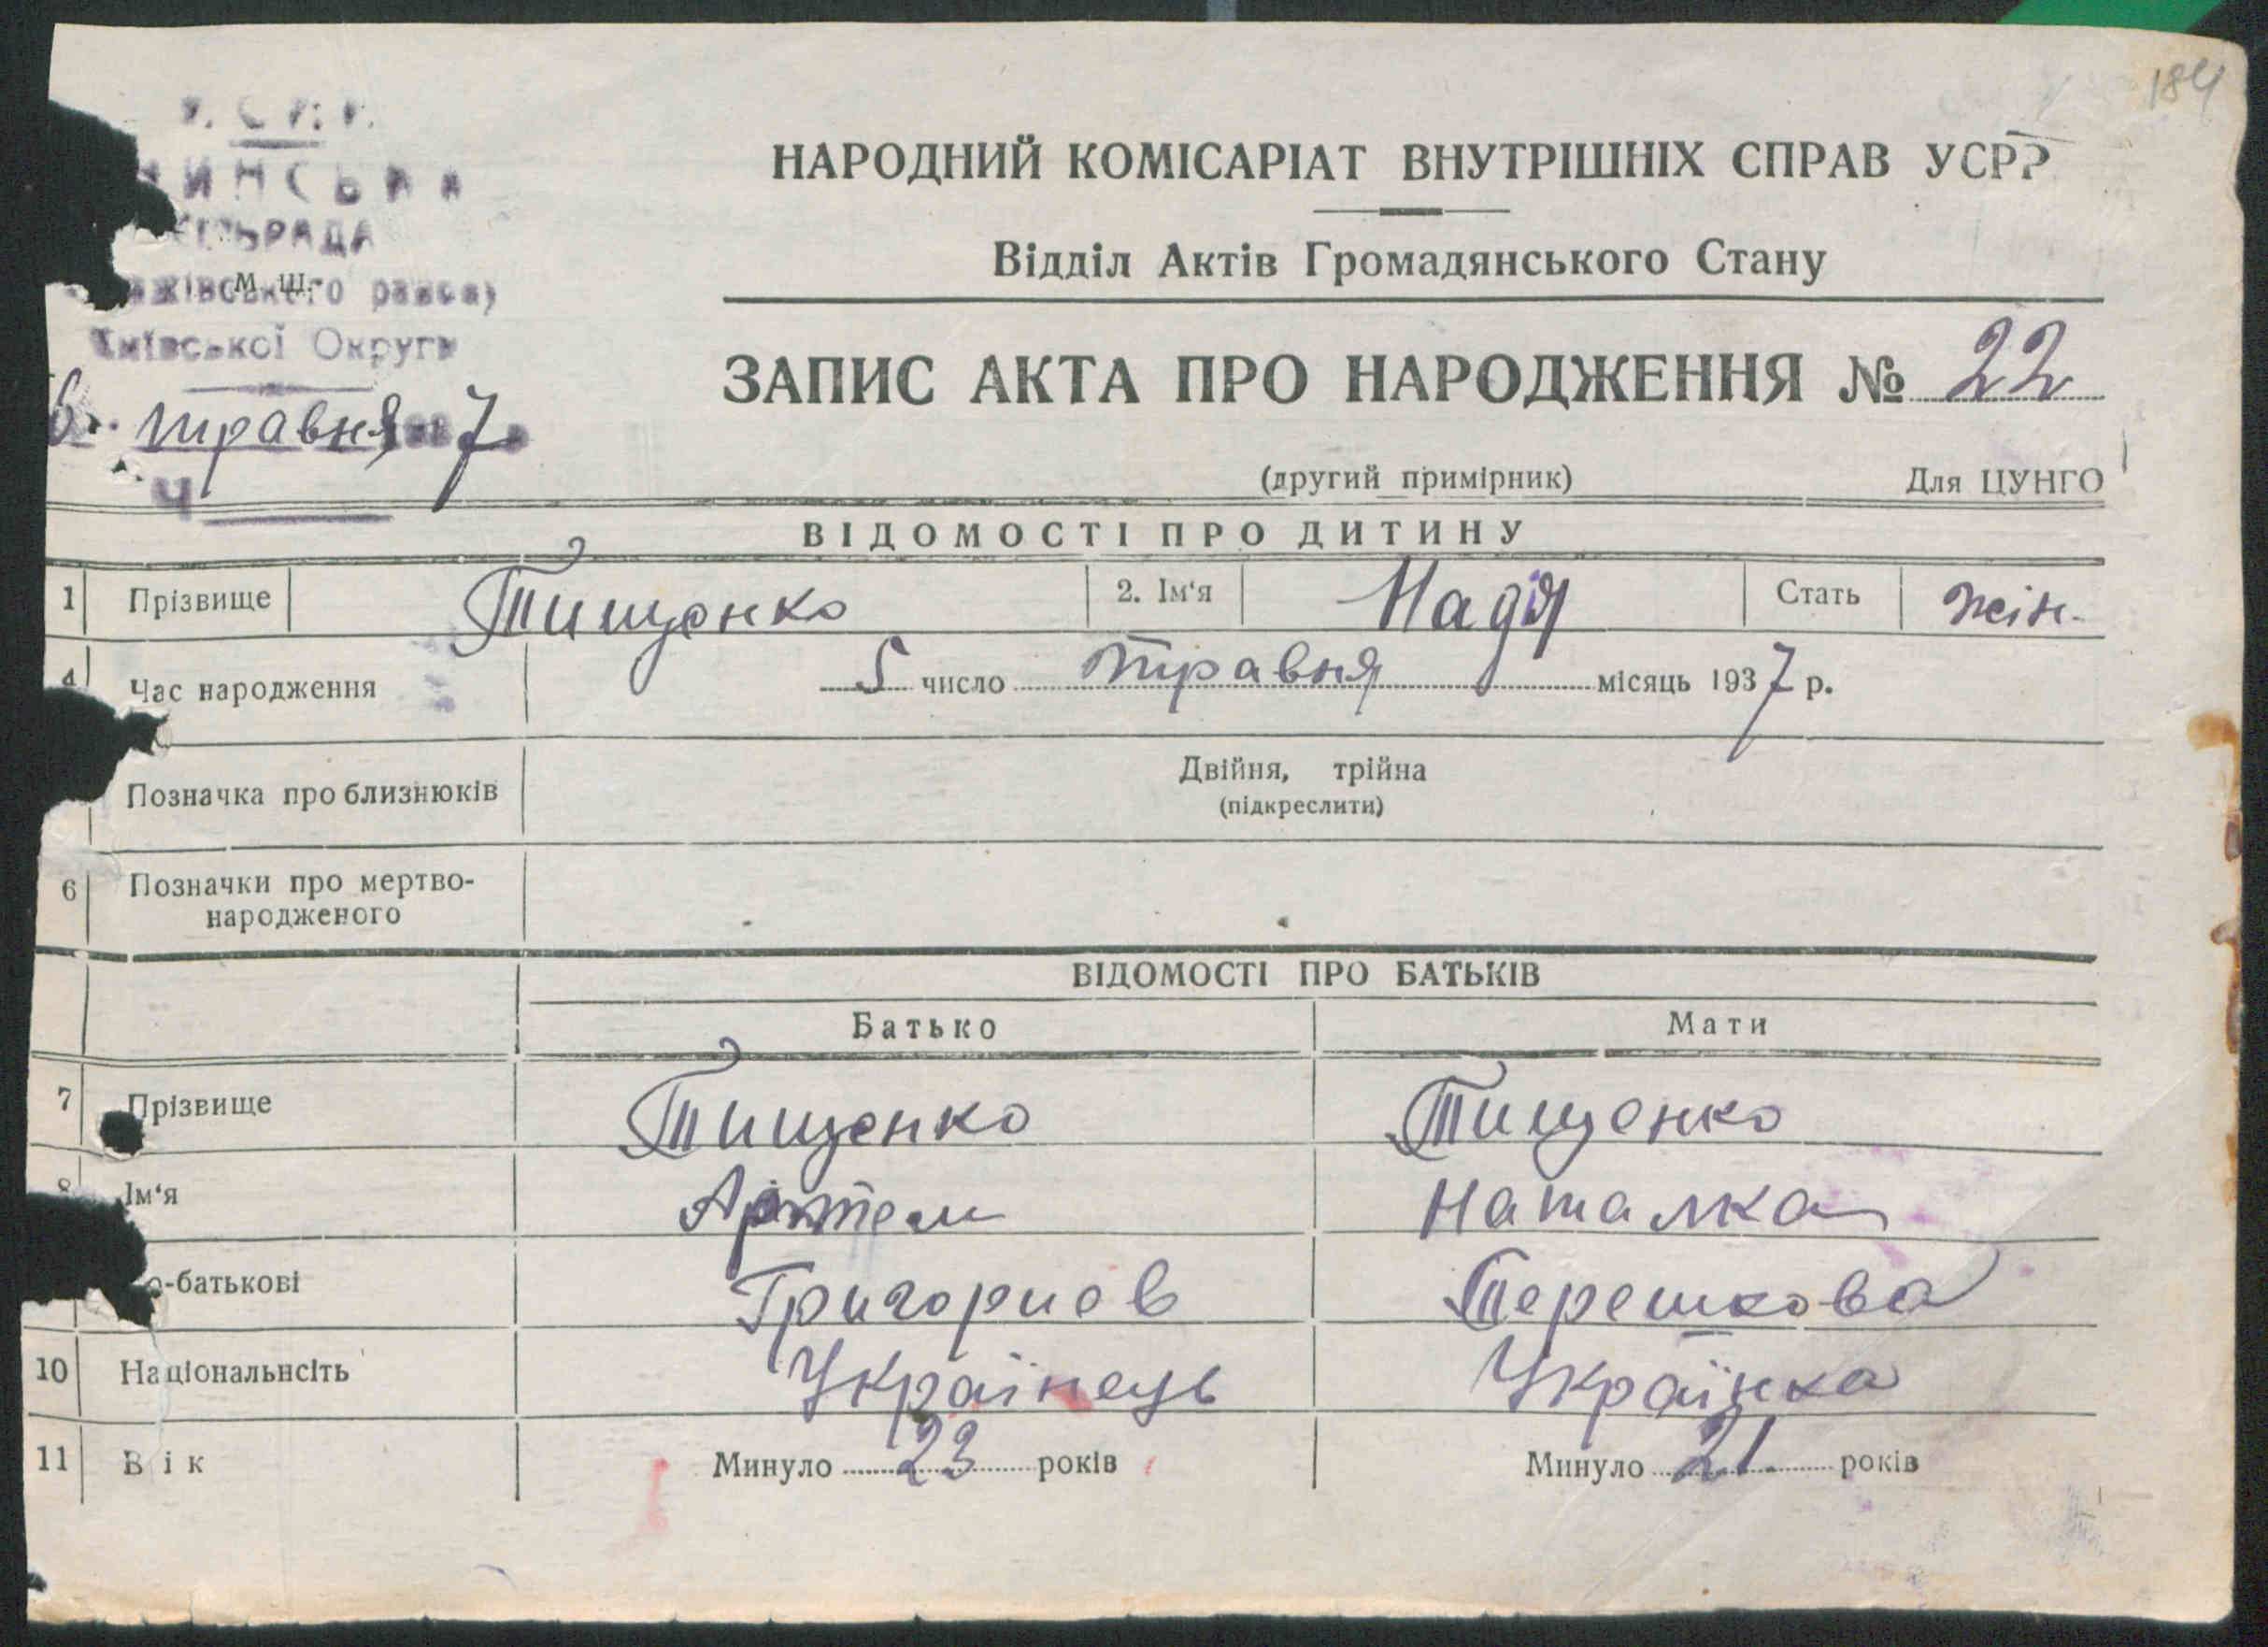 184
У.С.Р.Р.
ИНСЬКА
СІЛЬРАДА
М. Ш.
району
Київської Округи
6. травня 7
Ч
НАРОДНИЙ КОМІСАРІАТ ВНУТРІШНІХ СПРАВ УСРР
Відділ Актів Громадянського Стану
ЗАПИС АКТА ПРО НАРОДЖЕННЯ № 22
(другий примірник) Для ЦУНГО
ВІДОМОСТІ ПРО ДИТИНУ
1 Прізвище Тищенко 2. Ім'я Надія Стать жін.
4 Час народження 5 число травня місяць 1937 р.
Позначка про близнюків Двійня, трійна
(підкреслити)
6 Позначки про мертво-
народженого
ВІДОМОСТІ ПРО БАТЬКІВ
Батько Мати
7 Прізвище Тищенко Тищенко
8 Ім'я Артем Наталка
о-батькові Григориев Терешкова
10 Національнсіть Українець Українка
11 Вік Минуло 23 років Минуло 21. років